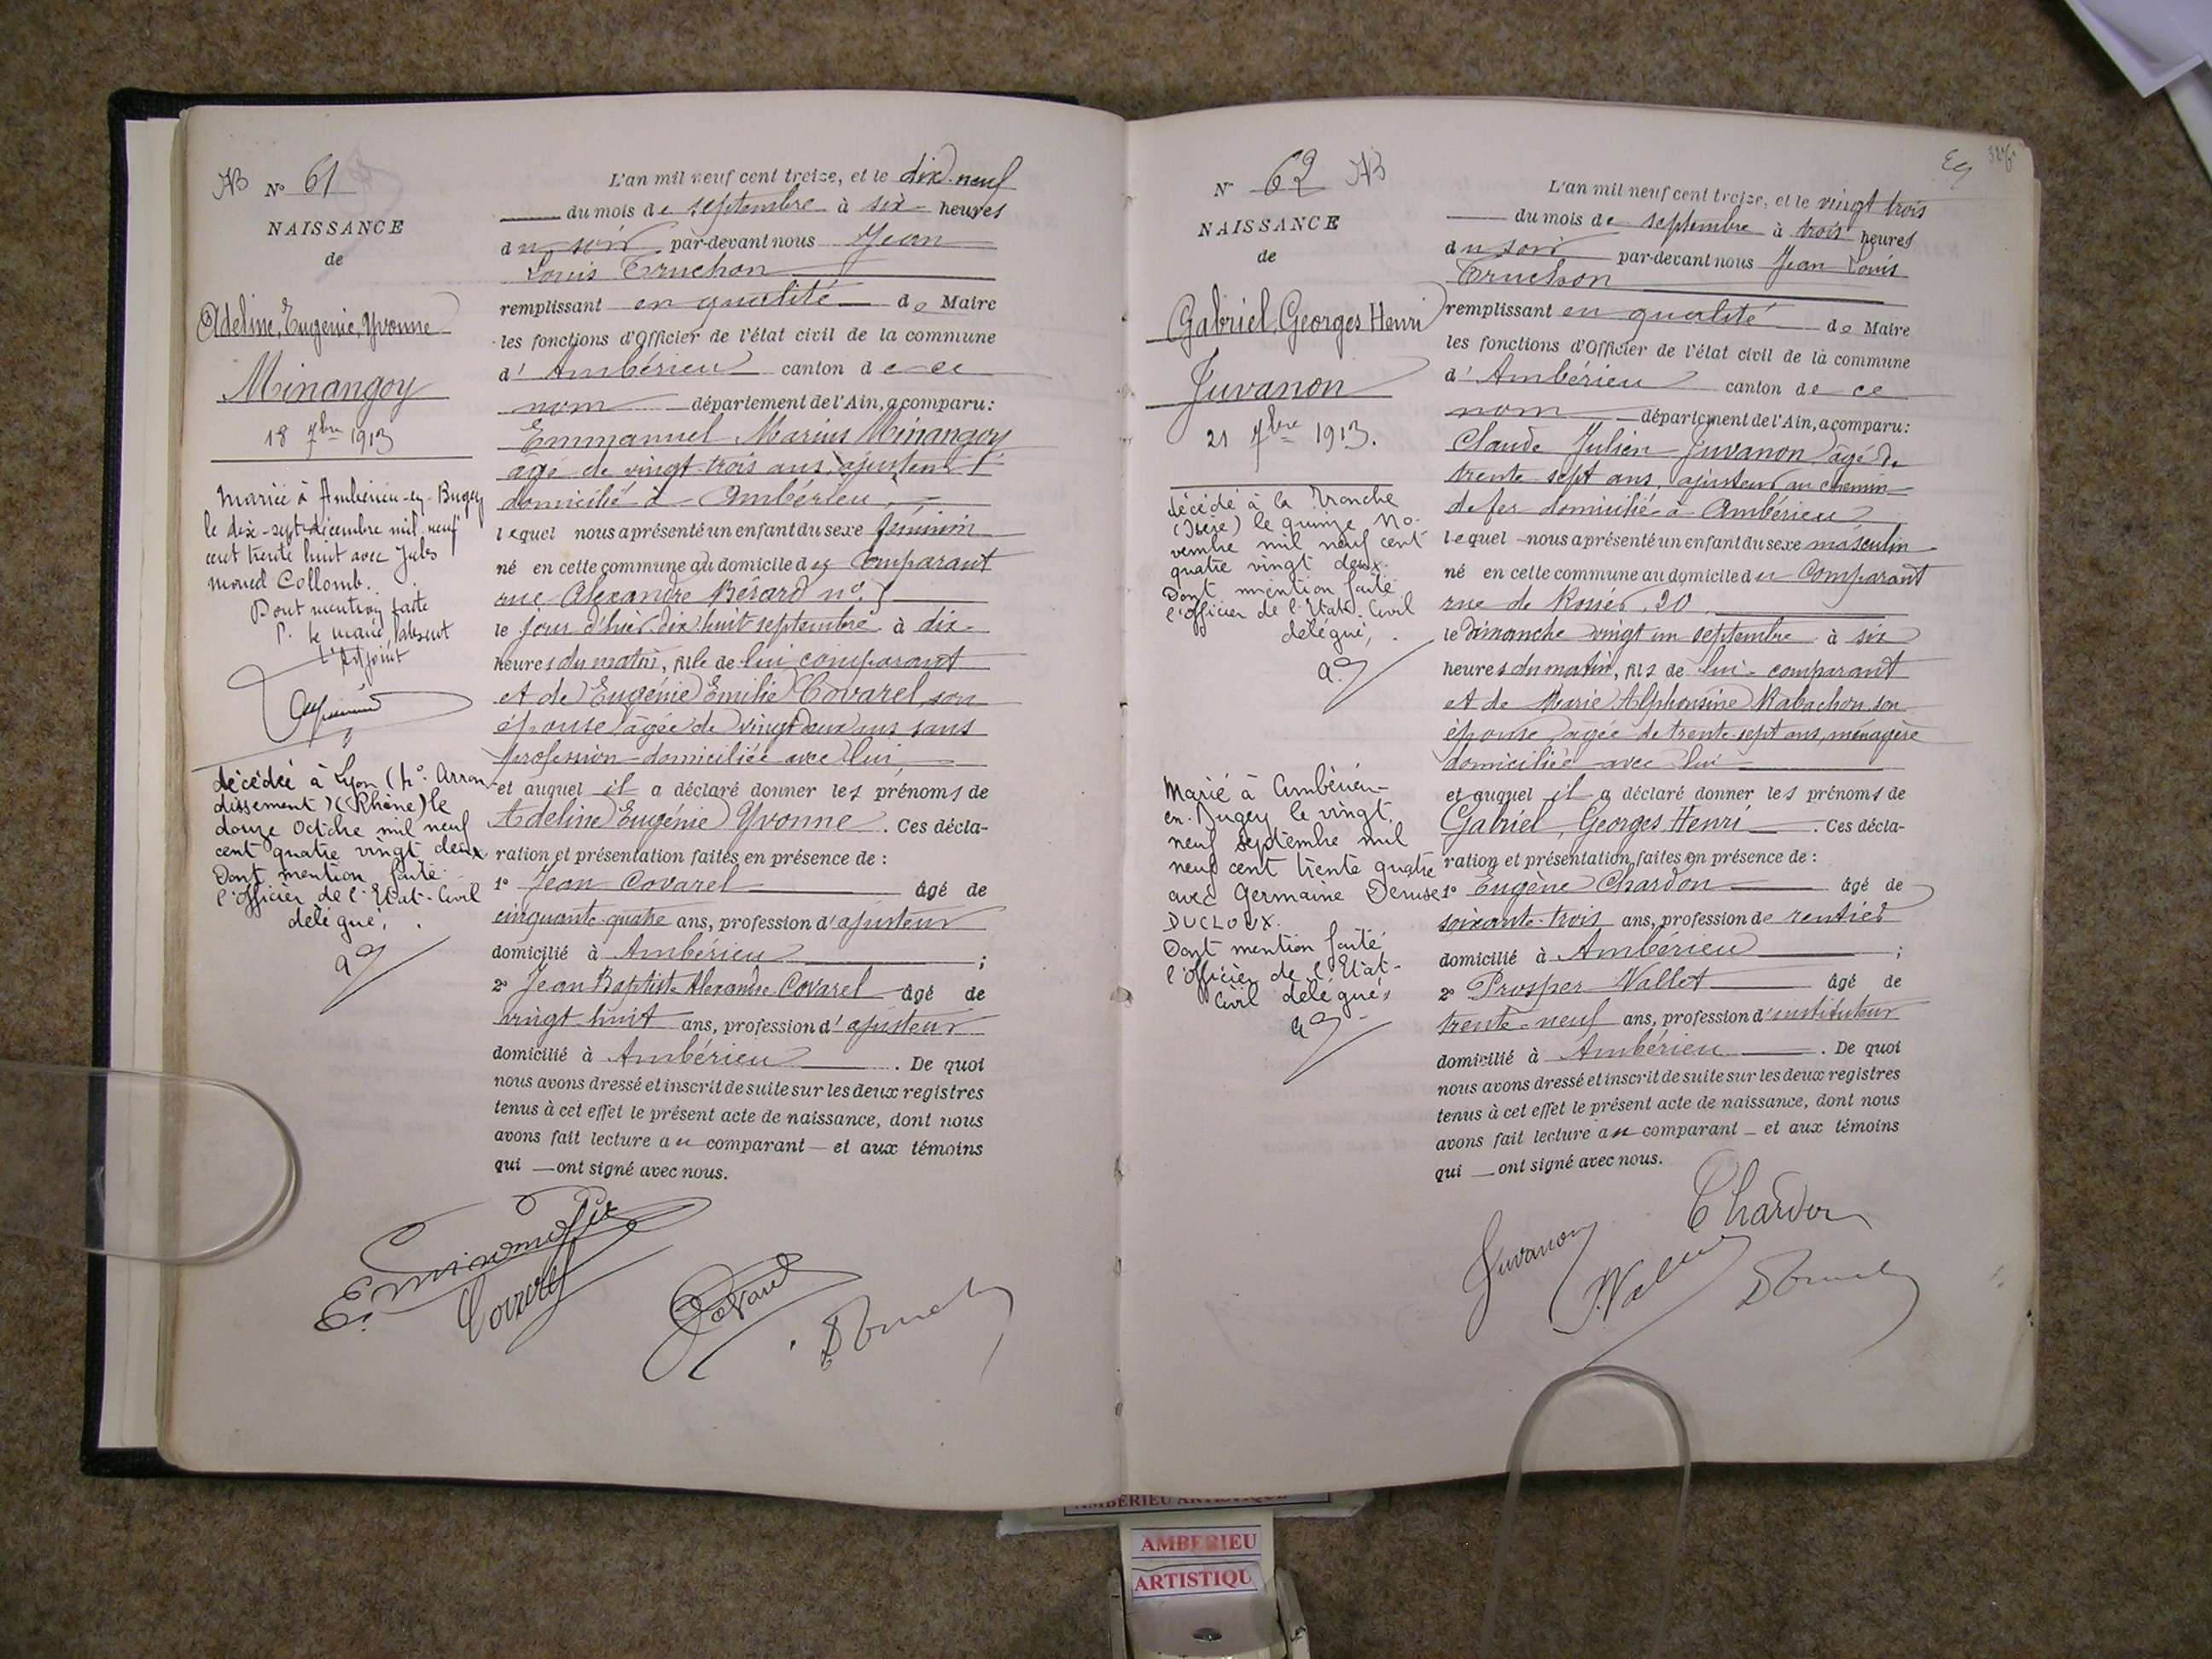 AB N° 61
NAISSANCE
de
Adeline, Eugénie, Yvonne
Minangoy
18 7bre 1913
Mariée à Ambérieu-en-Bugey
le dix-sept décembre mil neuf
cent trente huit avec Jules
Collomb.
Dont mention faite
P. le maire, l'absent
L'Adjoint
décédée à Lyon (4e Arron
dissement) (Rhône) le
douze Octobre mil neuf
cent quatre vingt deux
Dont mention faite
l'Officier de l'Etat-Civil
délégué,
L'an mil neuf cent treize, et le dix-neuf
du mois de septembre à six heures
du soir par-devant nous Jean
Louis Truchon
remplissant en qualité de Maire
les fonctions d'Officier de l'état civil de la commune
d'Ambérieu canton de ce
nom département de l'Ain, a comparu :
Emmanuel Marius Minangoy
âgé de vingt trois ans, ajusteur
domicilié à Ambérieu,
lequel nous a présenté un enfant du sexe féminin
né en cette commune au domicile du Comparant
rue Alexandre Bérard n°
le jour d'hier dix huit septembre à dix
heures du matin, fille de lui comparant
et de Eugénie Emilie Covarel, son
épouse âgée de vingt deux ans sans
profession domiciliée avec lui,
et auquel il a déclaré donner les prénoms de
Adeline Eugénie Yvonne. Ces décla-
ration et présentation faites en présence de :
1° Jean Covarel âgé de
cinquante-quatre ans, profession d'ajusteur
domicilié à Ambérieu ;
2° Jean Baptiste Alexandre Covarel âgé de
vingt huit ans, profession d'ajusteur
domicilié à Ambérieu. De quoi
nous avons dressé et inscrit de suite sur les deux registres
tenus à cet effet le présent acte de naissance, dont nous
avons fait lecture au comparant et aux témoins
qui ont signé avec nous.
Covarel
Covarel
N° 62 AB
NAISSANCE
de
Gabriel, Georges Henri
Juvanon
21 7bre 1913.
décédé à la Tronche
(Isère) le quinze No-
vembre mil neuf cent
quatre vingt deux.
Dont mention faite
l'Officier de l'Etat-Civil
délégué,
Marié à Ambérieu-
en-Bugey le vingt-
neuf septembre mil
neuf cent trente quatre
avec Germaine Denise
DUCLOUX.
Dont mention faite
l'Officier de l'Etat-
Civil délégué,
L'an mil neuf cent treize, et le vingt trois
du mois de septembre à trois heures
du soir par-devant nous Jean Louis
Truchon
remplissant en qualité de Maire
les fonctions d'Officier de l'état civil de la commune
d'Ambérieu canton de ce
nom département de l'Ain, a comparu :
Claude Julien Juvanon âgé de
trente sept ans, ajusteur au chemin
de fer domicilié à Ambérieu
lequel nous a présenté un enfant du sexe masculin
né en cette commune au domicile du Comparant
rue de 20
le dimanche vingt un septembre à six
heures du matin, fils de lui comparant
et de Marie Alphonsine Rabachon, son
épouse, âgée de trente-sept ans, ménagère
domiciliée avec lui
et auquel il a déclaré donner les prénoms de
Gabriel, Georges Henri. Ces décla-
ration et présentation faites en présence de :
1° Eugène Chardon âgé de
soixante-trois ans, profession de rentier
domicilié à Ambérieu ;
2° Prosper Vallet âgé de
trente-neuf ans, profession d'instituteur
domicilié à Ambérieu. De quoi
nous avons dressé et inscrit de suite sur les deux registres
tenus à cet effet le présent acte de naissance, dont nous
avons fait lecture au comparant et aux témoins
qui ont signé avec nous.
Chardon
Juvanon
AMBERIEU ARTISTIQUE
AMBERIEU
ARTISTIQU